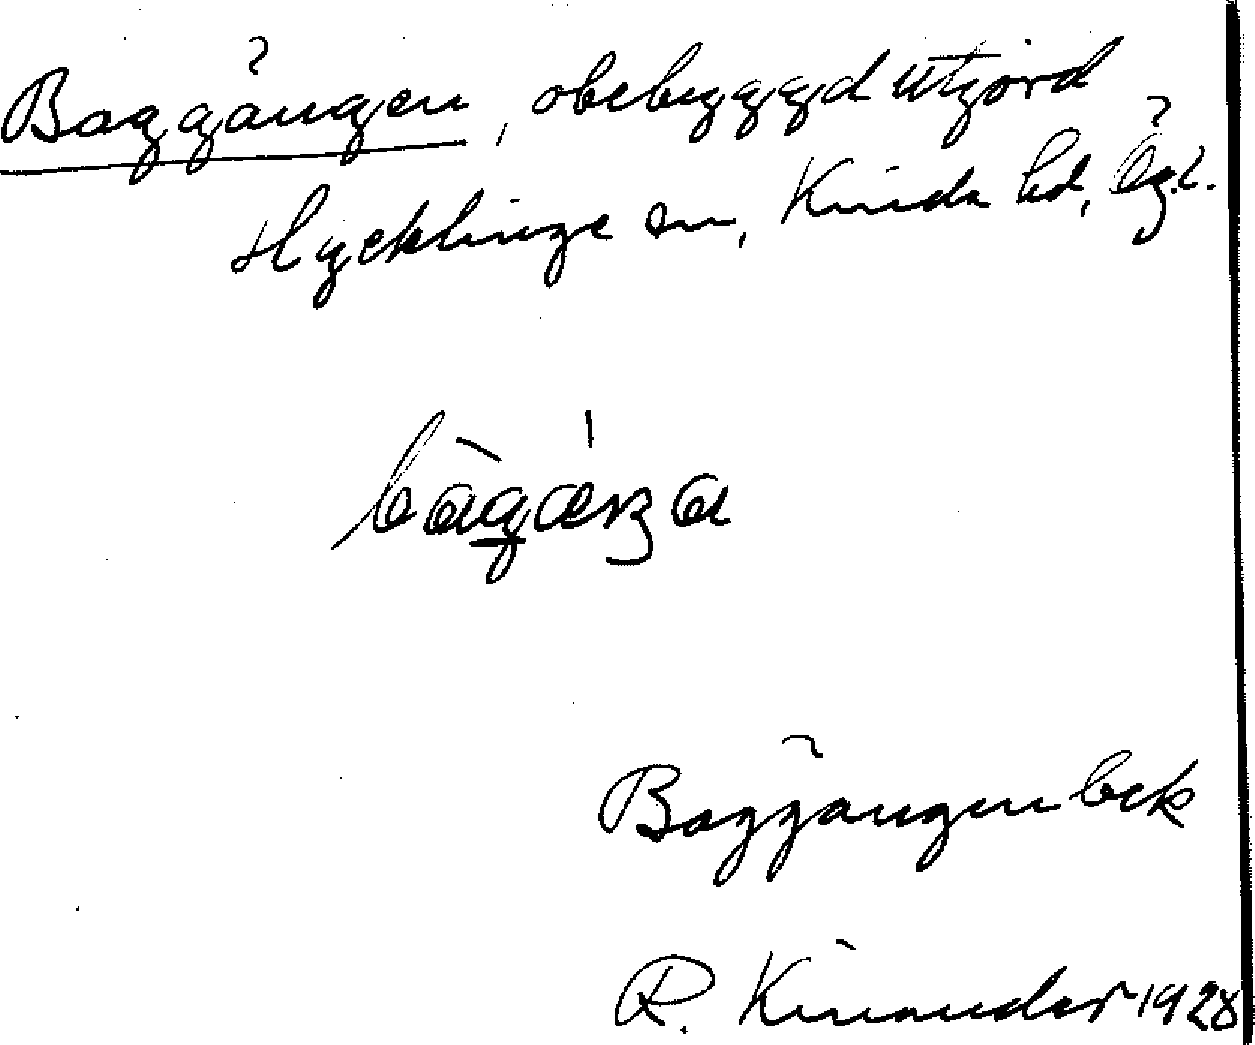 Baggängen, obebyggd utjord
Hycklinge sn, Kinda hd, Ögl.
Baggängen bek
R. Kinander 1928